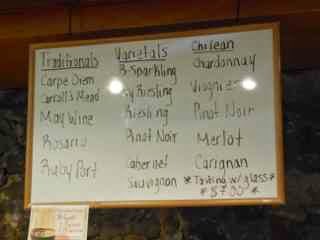 Traditionals
Carpe Diem
Carroll's Mead
May Wine
Rosario
Ruby Port
Varietals
B-Sparkling
Riesling
Riesling
Pinot Noir
Cabernet
Sauvignon
Chilean
Chardonnay
Viognier
Pinot Noir
Merlot
Carignan
*Tasting w/glass*
*$7.00*